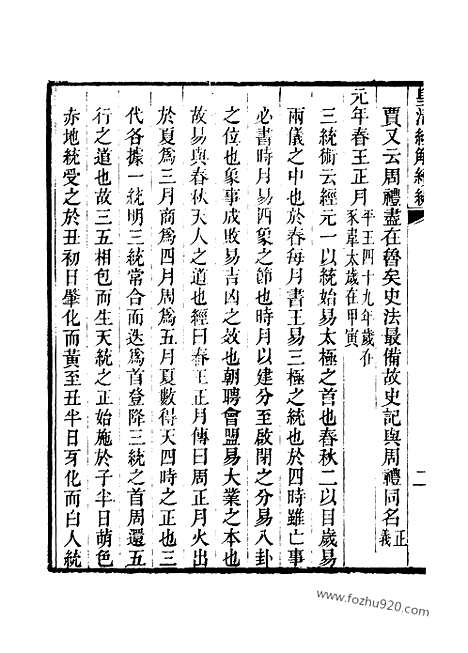 皇清經解經續
賈又云周禮盡在魯矣史法最備故史記與周禮同名正義
元年春王正月平王四十九年歲在豕韋太歲在甲寅
三統術云經元一以統始易太極之首也春秋二以目歲易
兩儀之中也於春每月書王易三極之統也於四時雖亡事
必書時月易四象之節也時月以建分至啟閉之分易八卦
之位也象事成敗易吉凶之效也朝聘會盟易大業之本也
故易與春秋天人之道也經曰春王正月傳曰周正月火出
於夏爲三月商爲四月周爲五月夏數得天四時之正也三
代各據一統明三統常合而迭爲首登降三統之首周還五
行之道也故三五相包而生天統之正始施於子半日萌色
赤地統受之於丑初日肇化而黃至丑半日牙化而白人統
二
www.fozhu920.com